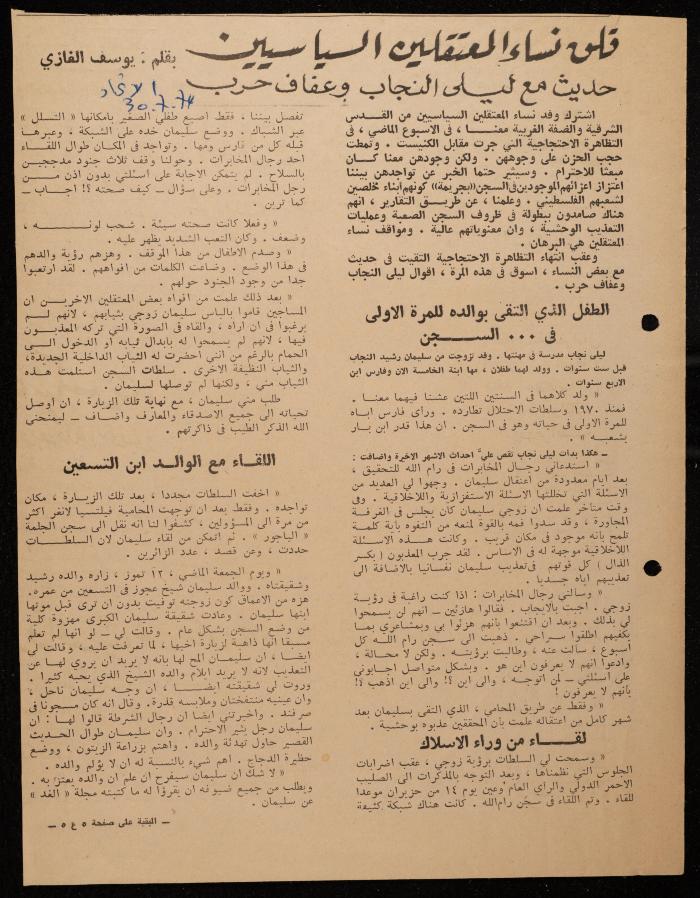 قلق نساء المعتقلين السياسيين
بقلم : يوسف الغازي
حديث مع ليلى النجاب وعفاف حرب
الاتحاد
30.7.74
اشترك وفد نساء المعتقلين السياسيين من القدس
الشرقية والضفة الغربية معنا ، في الاسبوع الماضي ، في
التظاهرة الاحتجاجية التي جرت مقابل الكنيست . وتمطت
حجب الحزن على وجوههن . ولكن وجودهن معنا كان
مبعثا للاحترام . وسيثير حتما الخبر عن تواجدهن بيننا
اعتزاز اعزائهم الموجودين في السجن «بجريمة» كونهم أبناء مخلصين
لشعبهم الفلسطيني . وعلمنا ، عن طريق التقارير ، انهم
هناك صامدون ببطولة في ظروف السجن الصعبة وعمليات
التعذيب الوحشية ، وان معنوياتهم عالية . ومواقف نساء
المعتقلين هي البرهان .
وعقب انتهاء التظاهرة الاحتجاجية التقيت في حديث
مع بعض النساء ، اسوق في هذه المرة ، اقوال ليلى النجاب
وعفاف حرب .
الطفل الذي التقى بوالده للمرة الاولى
في ... السجن
ليلى نجاب مدرسة في مهنتها . وقد تزوجت من سليمان رشيد النجاب
قبل ست سنوات . وولد لهما طفلان ، مها ابنة الخامسة الان وفارس ابن
الاربع سنوات .
« ولد كلاهما في السنتين اللتين عشنا فيهما معنا .
فمنذ ١٩٧٠ وسلطات الاحتلال تطارده . ورأى فارس اباه
للمرة الاولى في حياته وهو في السجن . ان هذا قدر ابن بار
بشعبه » .
ــ هكذا بدأت ليلى نجاب تقص عليّ احداث الاشهر الاخيرة واضافت :
« استدعاني رجال المخابرات في رام الله للتحقيق ،
بعد ايام معدودة من اعتقال سليمان . وجهوا لي العديد من
الاسئلة التي تخللتها الاسئلة الاستفزازية واللااخلاقية . وفي
وقت متأخر علمت ان زوجي سليمان كان يجلس في الغرفة
المجاورة ، وقد سدوا فمه بالقوة لمنعه من التفوه بأية كلمة
تلمح بأنه موجود في مكان قريب . وكانت هذه الاسئلة
اللااخلاقية موجهة له في الاساس . لقد جرب المعذبون ( بكسر
الذال ) كل قوتهم في تعذيب سليمان نفسانيا بالاضافة الى
تعذيبهم اياه جسديا .
« وسألني رجال المخابرات : اذا كنت راغبة في رؤية
زوجي . اجبت بالايجاب . فقالوا هازئين ــ انهم لن يسمحوا
لي بذلك . وبعد ان اقتنعوا بأنهم هزئوا بي وبمشاعري بما
يكفيهم اطلقوا سراحي . ذهبت الى سجن رام الله كل
اسبوع ، سألت عنه ، وطالبت برؤيته . ولكن لا محالة ،
وادعوا انهم لا يعرفون اين هو . وبشكل متواصل اجابوني
على اسئلتي ــ لمن اتوجه ، والى اين ؟! والى اين اذهب ؟!
بأنهم لا يعرفون !
« وفقط عن طريق المحامي ، الذي التقى بسليمان بعد
شهر كامل من اعتقاله علمت بأن المحققين عذبوه بوحشية .
لقاء من وراء الاسلاك
« وسمحت لي السلطات برؤية زوجي ، عقب اضرابات
الجلوس التي نظمناها ، وبعد التوجه بالمذكرات الى الصليب
الاحمر الدولي والرأي العام وعين يوم ١٤ من حزيران موعدا
للقاء . وتم اللقاء في سجن رام الله . كانت هناك شبكة كثيفة
تفصل بيننا ، فقط اصبع طفلي الصغير بامكانها « التسلل »
عبر الشباك . ووضع سليمان خده على الشبكة ، وعبرها
قبله كل من فارس ومها . وتواجد في المكان طوال اللقاء
احد رجال المخابرات . وحولنا وقف ثلاث جنود مدججين
بالسلاح . لم يتمكن الاجابة على اسئلتي بدون اذن من
رجل المخابرات . وعلى سؤال ــ كيف صحته ؟! اجاب ــ
كما ترين .
« وفعلا كانت صحته سيئة . شحب لونه ،
وضعف . وكان التعب الشديد يظهر عليه .
« وصدم الاطفال من هذا الموقف . وهزهم رؤية والدهم
في هذا الوضع . وضاعت الكلمات من افواههم . لقد ارتعبوا
جدا من وجود الجنود حولهم .
« بعد ذلك علمت من افواه بعض المعتقلين الاخرين ان
المساجين قاموا بالباس سليمان زوجي بثيابهم ، لانهم لم
يرغبوا في ان اراه ، والقاه في الصورة التي تركه المعذبون
فيها ، لانهم لم يسمحوا له بابدال ثيابه او الدخول الى
الحمام بالرغم من انني احضرت له الثياب الداخلية الجديدة،
والثياب النظيفة الاخرى . سلطات السجن استلمت هذه
الثياب مني ، ولكنها لم توصلها لسليمان .
طلب مني سليمان ، مع نهاية تلك الزيارة ، ان اوصل
تحياته الى جميع الاصدقاء والمعارف واضاف ــ ليمنحني
الله الذكر الطيب في ذاكرتهم .
اللقاء مع الوالد ابن التسعين
« اخفت السلطات مجددا ، بعد تلك الزيارة ، مكان
تواجده . وفقط بعد ان توجهت المحامية فيلتسيا لانغر اكثر
من مرة الى المسؤولين ، كشفوا لنا انه نقل الى سجن الجلمة
« الياجور » . لم اتمكن من لقاء سليمان لان السلطات
حددت ، وعن قصد ، عدد الزائرين .
« ويوم الجمعة الماضي ، ١٢ تموز ، زاره والده رشيد
وشقيقتاه . ووالد سليمان شيخ عجوز في التسعين من عمره.
هزه من الاعماق كون زوجته توفيت بدون ان ترى قبل موتها
ابنها سليمان . وعادت شقيقة سليمان الكبرى مهزوة كلية
من وضع السجن بشكل عام . وقالت لي ــ لو انها لم تعلم
مسبقا انها ذاهبة لزيارة اخيها ، لما تعرفت عليه ، وقالت لي
ايضا ، ان سليمان المح لها بانه لا يريد ان يروي لها عن
التعذيب لانه لا يريد ايلام والده الشيخ الذي يحبه كثيرا .
وروت لي شقيقته ايضا ، ان وجه سليمان ناحل ،
وان عينيه منتفختان وملابسه قذرة. وقال انه كان مسجونا في
صرفند . واخبرتني ايضا ان رجال الشرطة قالوا لها : ان
سليمان رجل يثير الاحترام . وان سليمان طوال الحديث
القصير حاول تهدئة والده . واهتم بزراعة الزيتون ، ووضع
حظيرة الدجاج . اهم شيء بالنسبة له ان لا يؤلم والده .
« لا شك ان سليمان سيفرح ان علم ان والده يعتز به .
ويطلب من جميع ضيوفه ان يقرأوا له ما كتبته مجلة « الغد »
عن سليمان .
ــ البقية على صفحة ٥ ع ٥ ــ